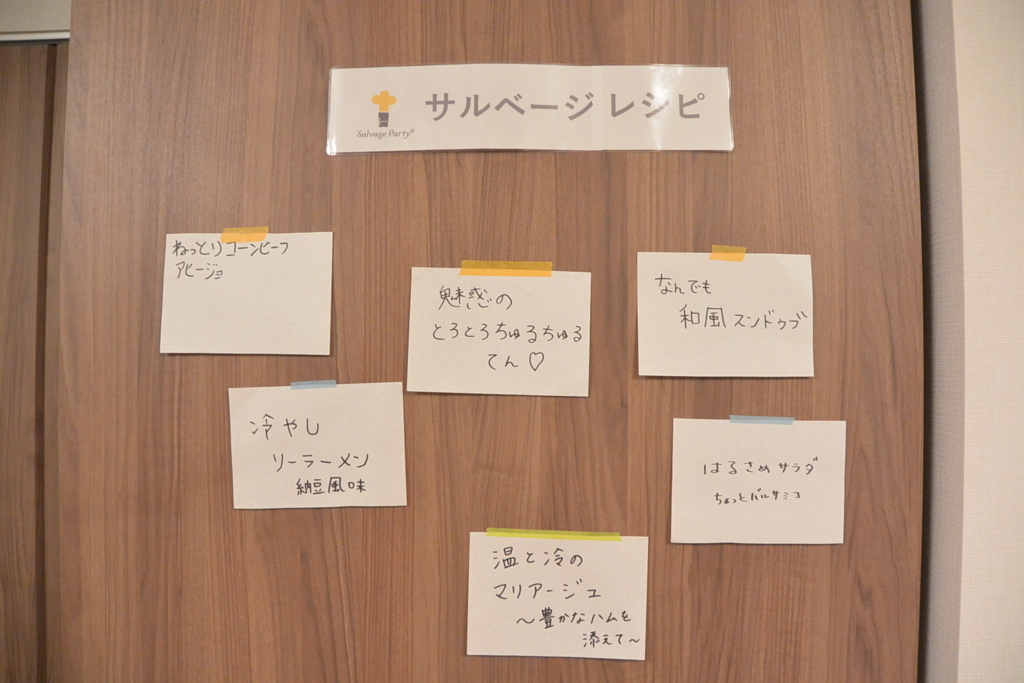 サルベージ レシピ
Salvage Party®
ねっとりコーンビーフ
アヒージョ
魅惑の
とろとろちゅるちゅる
てん♡
なんでも
和風スンドゥブ
冷やし
ソーラーメン
納豆風味
はるさめサラダ
ちょっとバルサミコ
温と冷の
マリアージュ
～豊かなハムを
添えて～